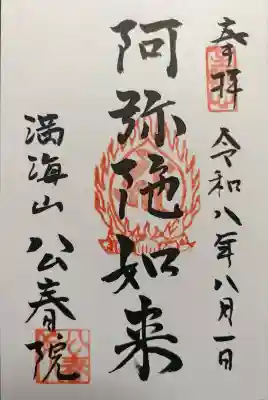 奉拝
令和八年八月一日
阿弥陀如来
満海山 公春院